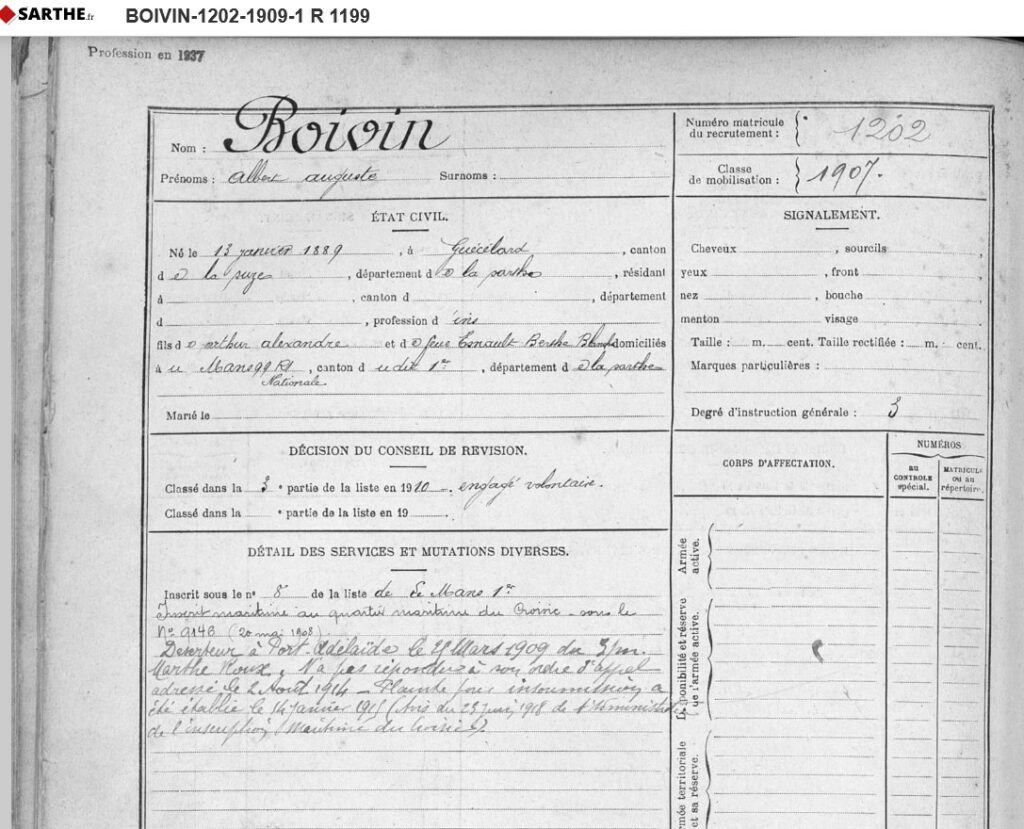 SARTHE.fr BOIVIN-1202-1909-1 R 1199
Profession en 1937
Nom : Boivin
Prénoms : Albert auguste Surnoms :
Numéro matricule du recrutement : 1202
Classe de mobilisation : 1907.
ÉTAT CIVIL.
Né le 13 janvier 1889, à Guécélard, canton
d e la suze, département d e la sarthe, résidant
à , canton d , département
d , profession d
fils d e arthur alexandre et d e feue Esnault Berthe domiciliés
à u Mans 99 Rt, canton d udit 1er, département d e la sarthe
Nationale
Marié le
SIGNALEMENT.
Cheveux , sourcils ,
yeux , front ,
nez , bouche ,
menton visage
Taille : m. cent. Taille rectifiée : m. cent.
Marques particulières :
Degré d'instruction générale : 3
DÉCISION DU CONSEIL DE REVISION.
Classé dans la 3e partie de la liste en 1910. engagé volontaire.
Classé dans la e partie de la liste en 19
CORPS D'AFFECTATION.
NUMÉROS
au CONTROLE spécial.
MATRICULE ou au répertoire.
Armée active.
Disponibilité et réserve de l'armée active.
Armée territoriale et sa réserve.
DÉTAIL DES SERVICES ET MUTATIONS DIVERSES.
Inscrit sous le no 8 de la liste de Le Mans 1er
Inscrit maritime au quartier maritime du Croisic sous le
No 9146 (20 mai 1908)
Déserteur à Port-Adélaïde le Mars 1909 du 3/m.
Marthe Roux, N'a pas répondu à son ordre d'appel
adressé le 2 Août 1914 – Plainte pour insoumission a
été établie le 14 janvier 1915 (Avis du 23 1918 de l'Administrateur
de l'inscription Maritime du Croisic).